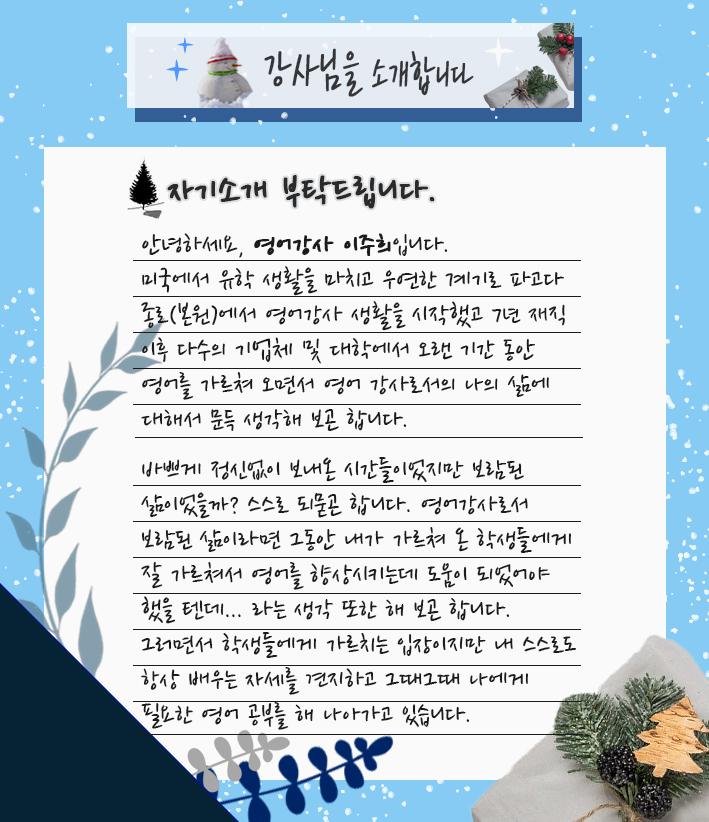 강사님을 소개합니다
자기소개 부탁드립니다.
안녕하세요, 영어강사 이주희입니다.
미국에서 유학 생활을 마치고 우연한 계기로 파고다
종로(본원)에서 영어강사 생활을 시작했고 7년 재직
이후 다수의 기업체 및 대학에서 오랜 기간 동안
영어를 가르쳐 오면서 영어 강사로서의 나의 삶에
대해서 문득 생각해 보곤 합니다.
바쁘게 정신없이 보내온 시간들이었지만 보람된
삶이었을까? 스스로 되묻곤 합니다. 영어강사로서
보람된 삶이라면 그동안 내가 가르쳐 온 학생들에게
잘 가르쳐서 영어를 향상시키는데 도움이 되었어야
했을 텐데... 라는 생각 또한 해 보곤 합니다.
그러면서 학생들에게 가르치는 입장이지만 내 스스로도
항상 배우는 자세를 견지하고 그때그때 나에게
필요한 영어 공부를 해 나아가고 있습니다.